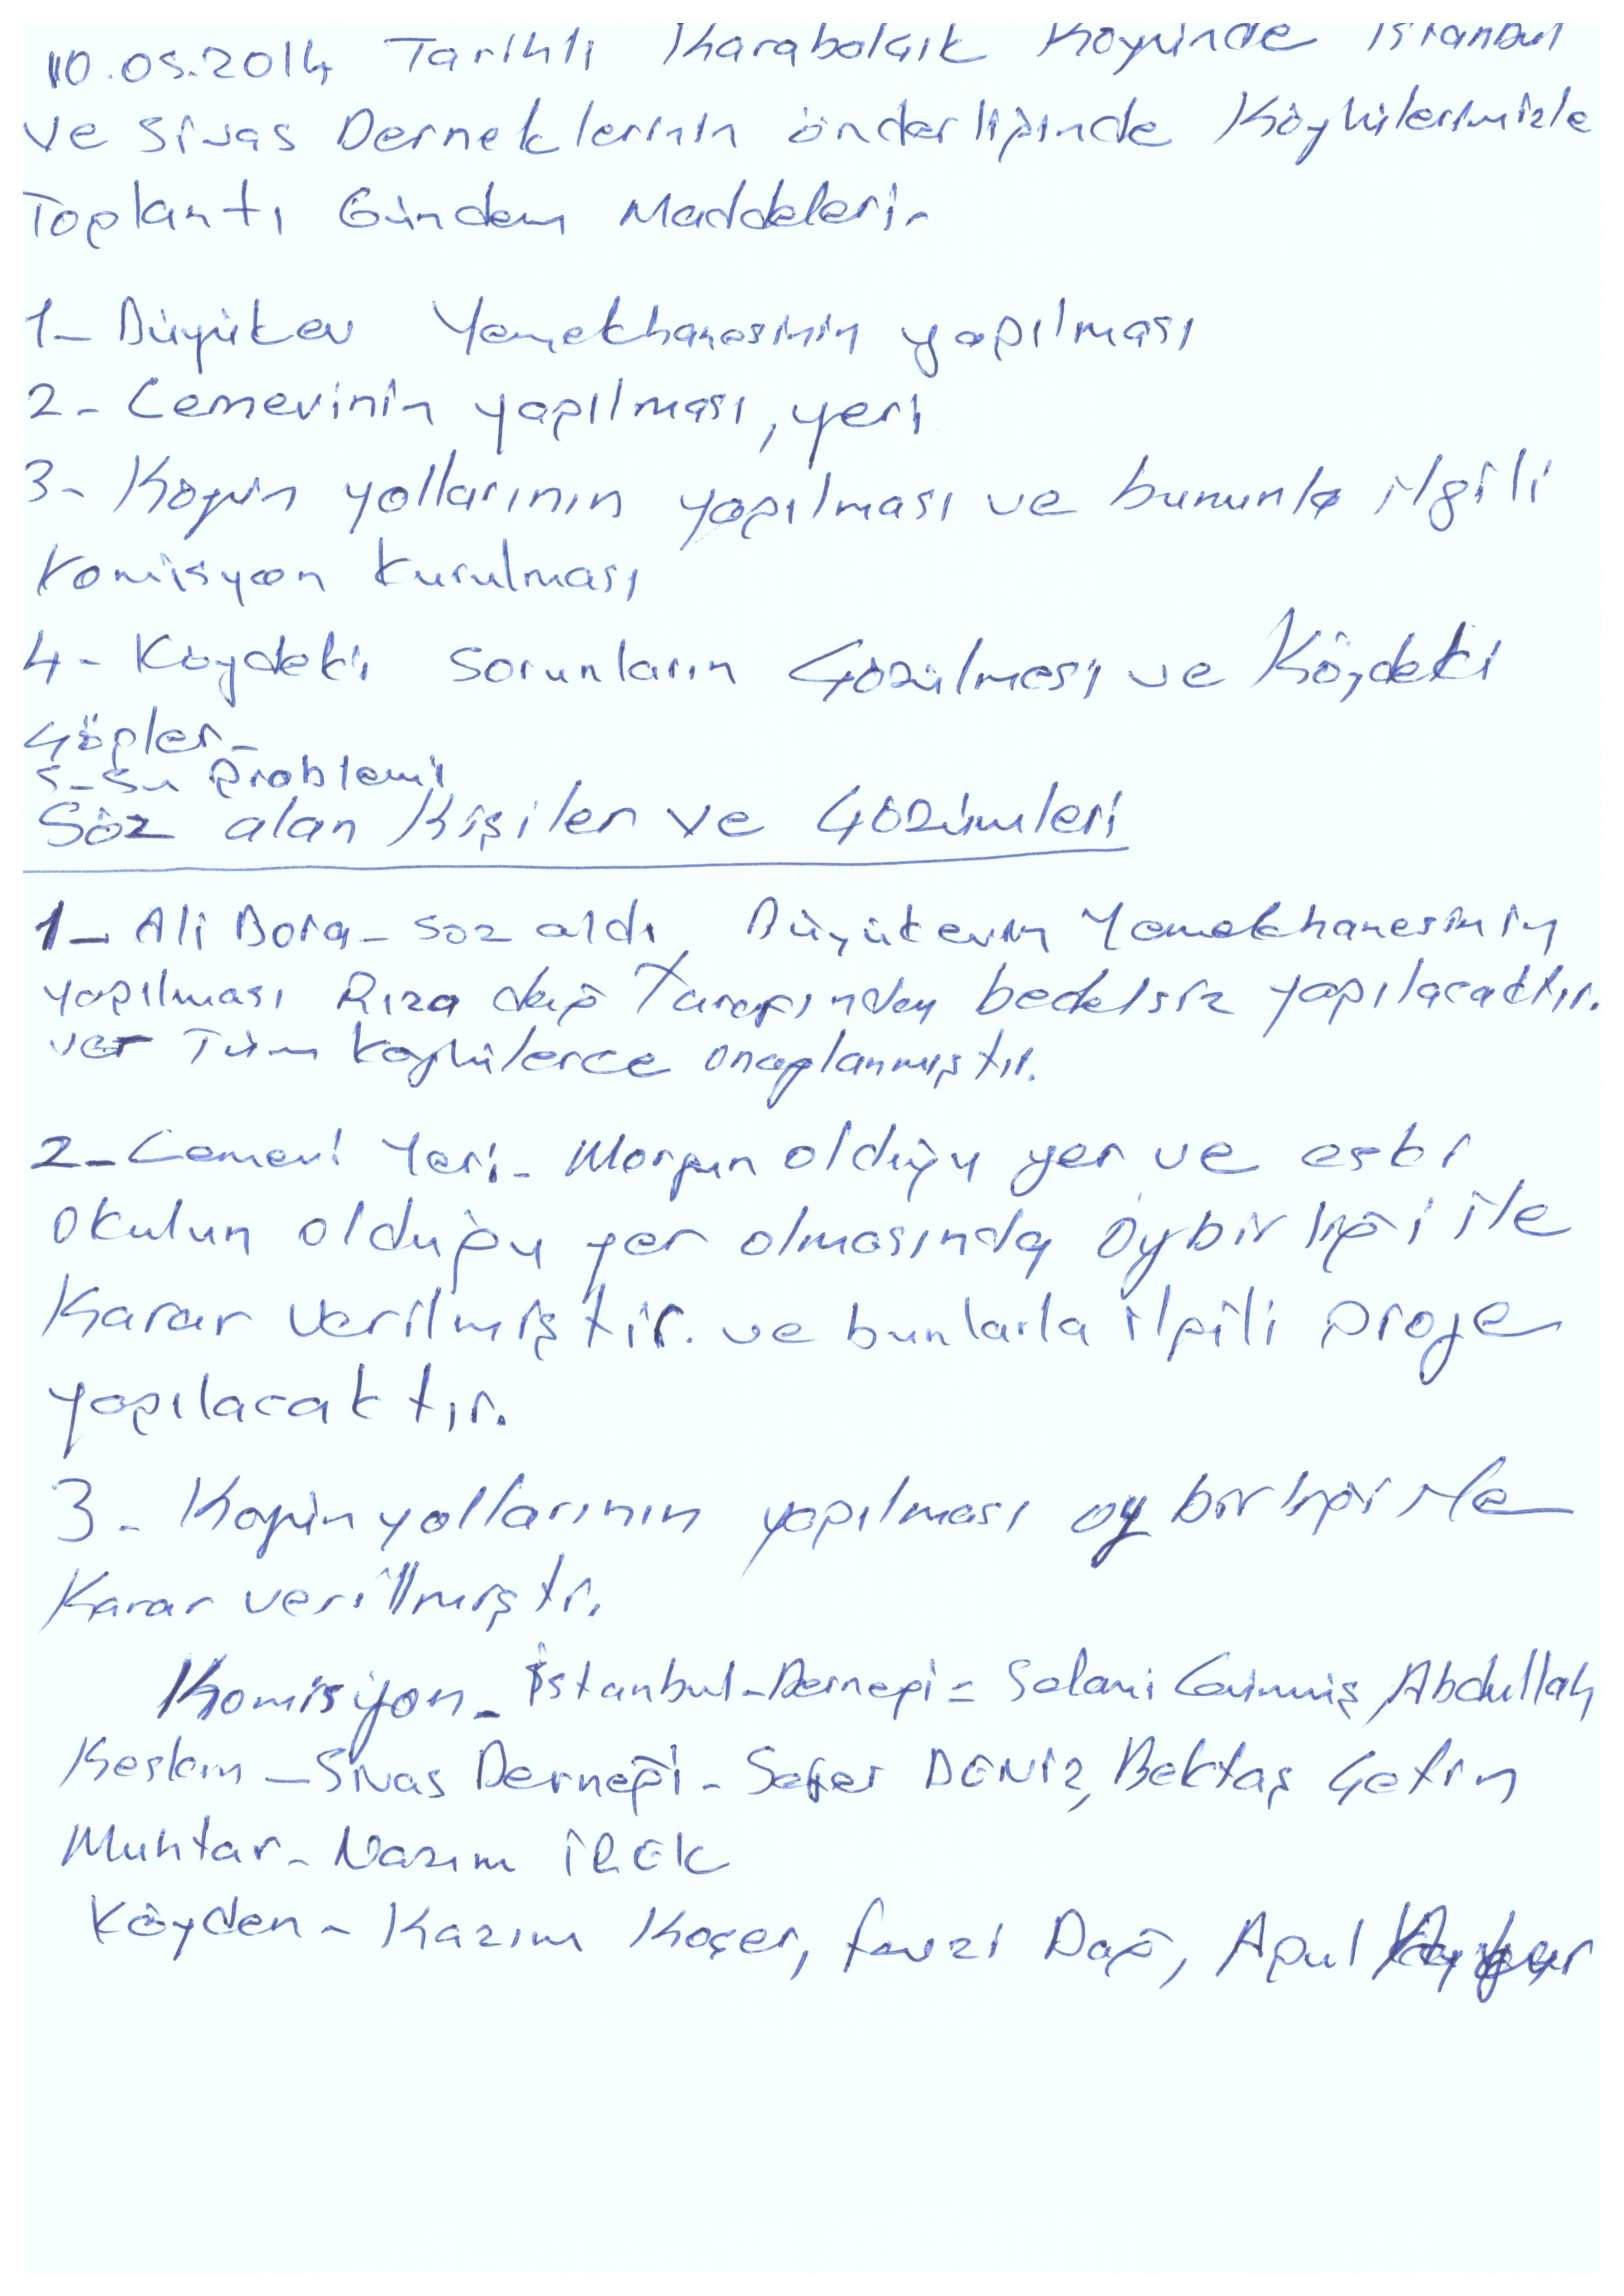 10.05.2014 Tarihli Karabalçık Köyünde İstanbul
ve Sivas Derneklerinin önderliğinde Köylülerimizle
Toplantı Gündem Maddeleri-
1- Büyükev Yemekhanesinin yapılması
2- Cemevinin yapılması, yeri
3- Köyün yollarının yapılması ve bununla ilgili
Komisyon kurulması
4- Köydeki sorunların Çözülmesi ve Köydeki
Çöpler-
5-Su Problemi
Söz alan Kişiler ve Çözümleri
1- Ali Bora- söz aldı Büyükevin Yemekhanesinin
yapılması Rıza dağ Tarafından bedelsiz yapılacaktır.
ve Tüm köylülerce onaylanmıştır.
2- Cemevi Yeri- Morgun olduğu yer ve eski
okulun olduğu yer olmasında oybirliği ile
Karar verilmiştir. ve bunlarla ilgili proje
yapılacaktır.
3- Köyün yollarının yapılması oy birliği ile
Karar verilmişti.
Komisiyon- İstanbul-Derneği= Selami Gümüş, Abdullah
Keskin - Sivas Derneği- Sefer DENİZ, Bektaş Çetin
Muhtar- Nazım İPEK
Köyden- Kazım Koçer, fevzi Dağ, Apul